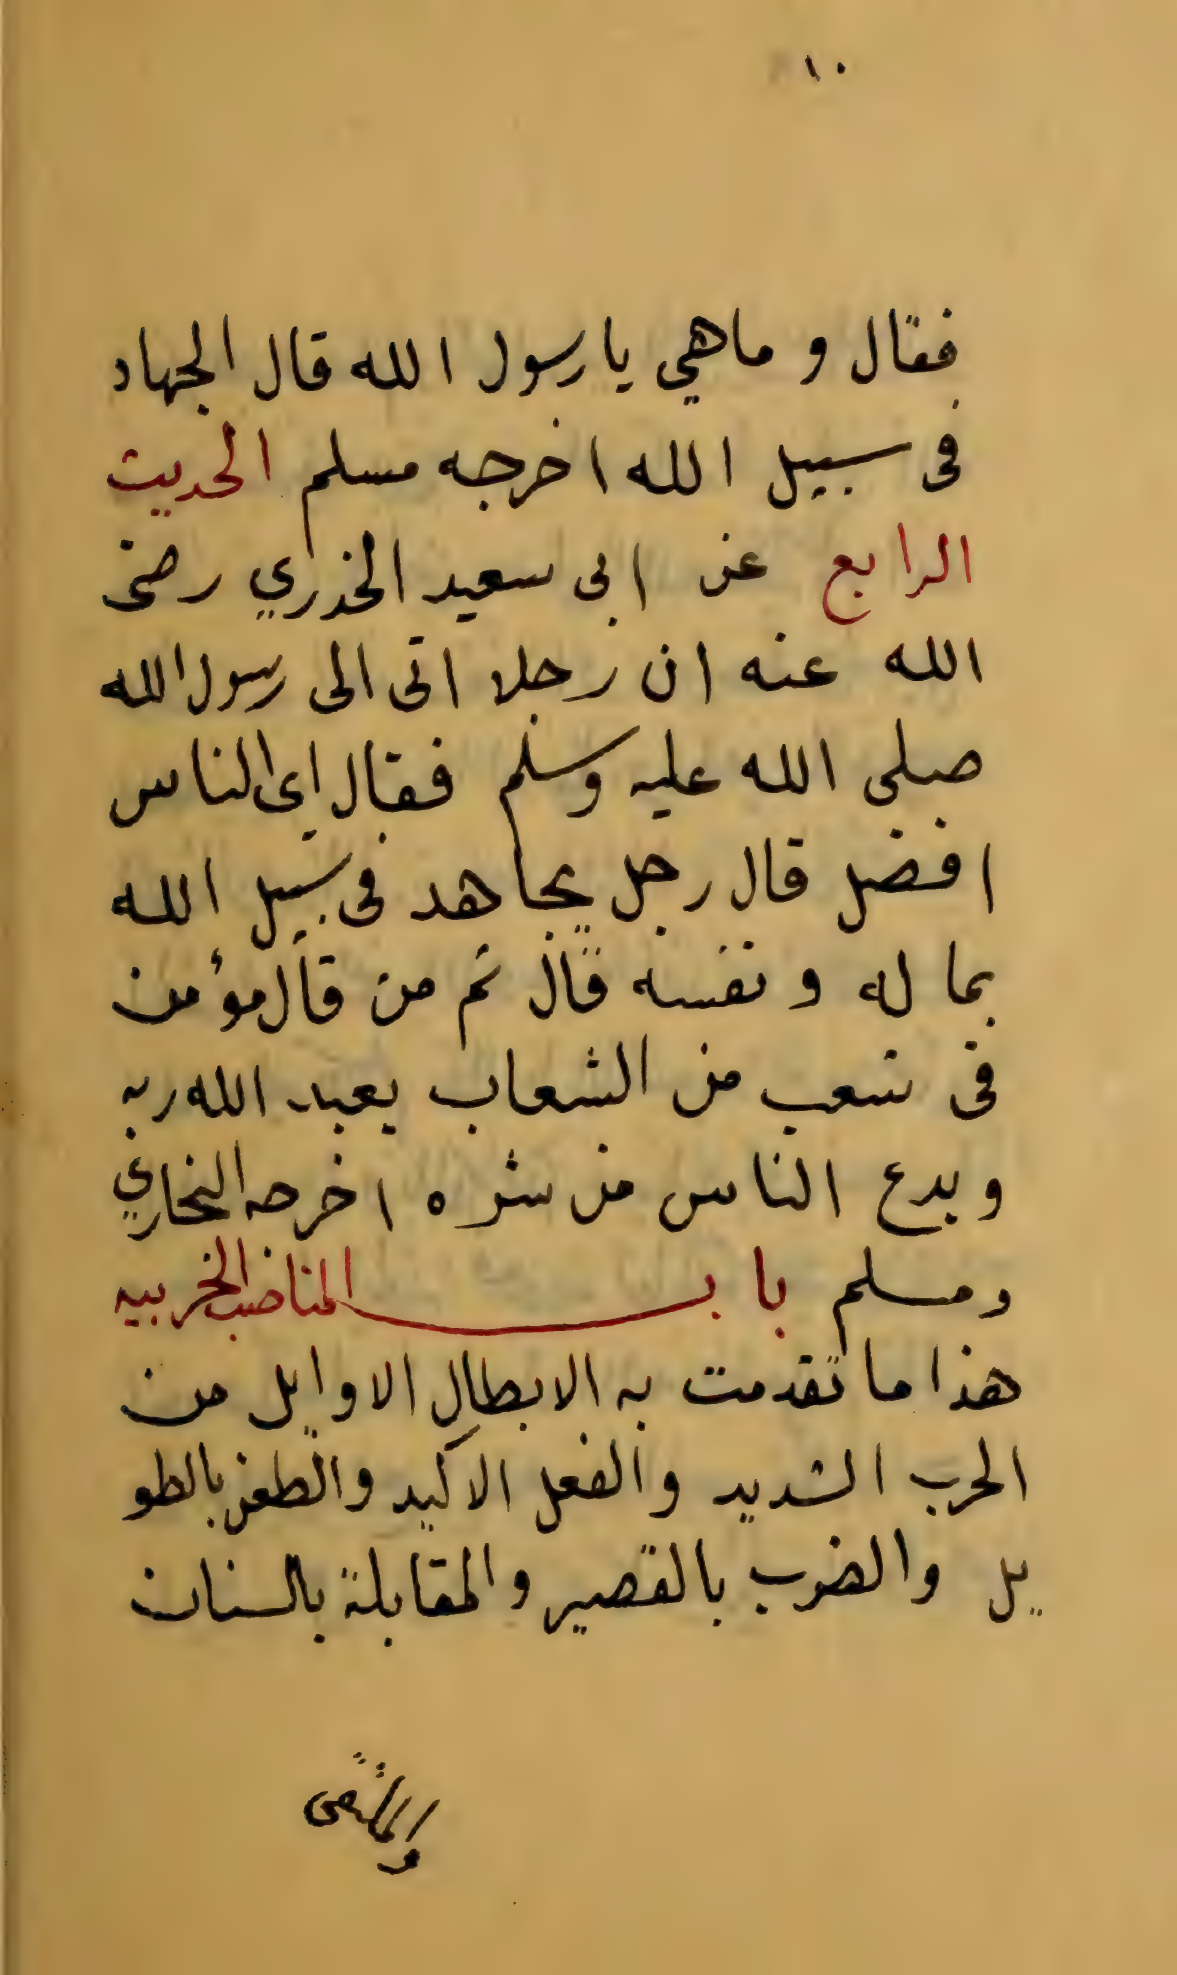 ١٠
فقال و ماهي يا رسول الله قال الجهاد
فى سبيل الله اخرجه مسلم الحديث
الرابع عن ابى سعيد الخذري رضى
الله عنه ان رجلا اتى الى رسول الله
صلى الله عليه وسلم فقال اى الناس
افضل قال رجل يجاهد فى سبيل الله
بما له و نفسه قال ثم من قال مؤمن
فى شعب من الشعاب يعبد الله ربه
ويدع الناس من شره اخرجه البخاري
ومسلم باب المناصب الحربيه
هذا ما تقدمت به الابطال الاوايل من
الحرب الشديد والفعل الاكيد والطعن بالطو
يل والضرب بالقصير والمقابلة بالسنان
والملتقى